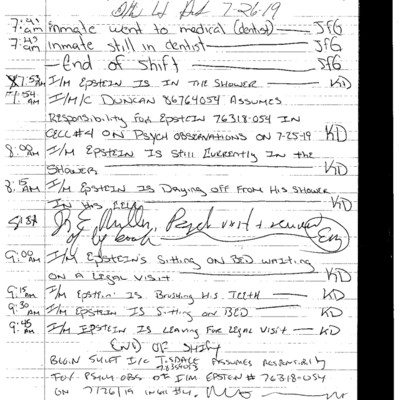 7-26-19
7:41 am inmate went to medical (dentist) JFG
7:43 am inmate still in dentist JFG
End of shift JFG
7:53 AM I/M EPSTEIN IS IN THE SHOWER KD
7:54 AM I/M/C DUNCAN 86764054 ASSUMES
RESPONSIBILITY FOR EPSTEIN 76318-054 IN
CELL #4 ON PSYCH OBSERVATIONS ON 7-25-19 KD
8:00 AM I/M EPSTEIN IS STILL CURRENTLY IN THE
SHOWER KD
8:15 AM I/M EPSTEIN IS DRYING OFF FROM HIS SHOWER
IN HIS CELL KD
Psych visit
9:00 AM I/M EPSTEIN'S SITTING ON BED WAITING
ON A LEGAL VISIT KD
9:15 AM I/M EPSTEIN IS BRUSHING HIS TEETH KD
9:30 AM I/M EPSTEIN IS SITTING ON BED KD
9:45 AM I/M EPSTEIN IS LEAVING FOR LEGAL VISIT KD
END OF SHIFT
BEGIN SHIFT I/C TISDALE ASSUMES RESPONSIBILITY
FOR PSYCH OBS OF I/M EPSTEIN # 76318-054
ON 7/26/19 IN CELL #4,